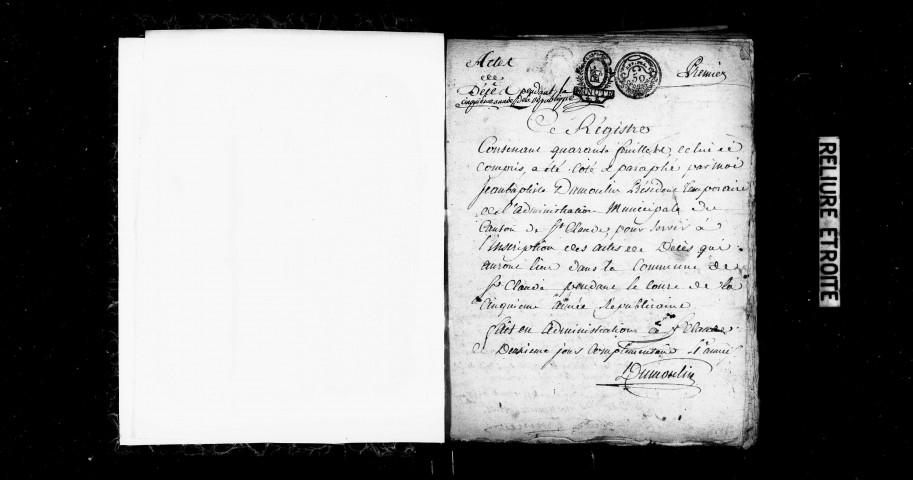 Actes
de
Décès pendant la
cinquieme année de la republique
Premier
MINUTE
Ce Régistre
Contenant quarante feuillets, celui ci
compris, a été coté & paraphé, par moi
Jean baptiste Dumoulin Président temporaire
de l'administration Municipale du
Canton de St Claude, pour servir à
l'Inscription des actes de Décès qui
auront lieu dans la Commune de
St Claude pendant le cours de la
Cinquieme année Republicaine
fait en administration à St Claude
Le Deuxieme jour Complementaire l'année
Dumoulin
RELIURE ETROITE